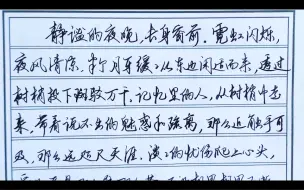 静谧的夜晚,长身窗前.霓虹闪烁,
夜风清凉.半月在缓缓从东边闲逛而来,透过
树梢投下斑驳万千.记忆里的人,从树梢中走
来,带着说不出的魅惑和疏离,那么近触手可
及,那么远咫尺天涯,淡淡的忧伤爬上心头,